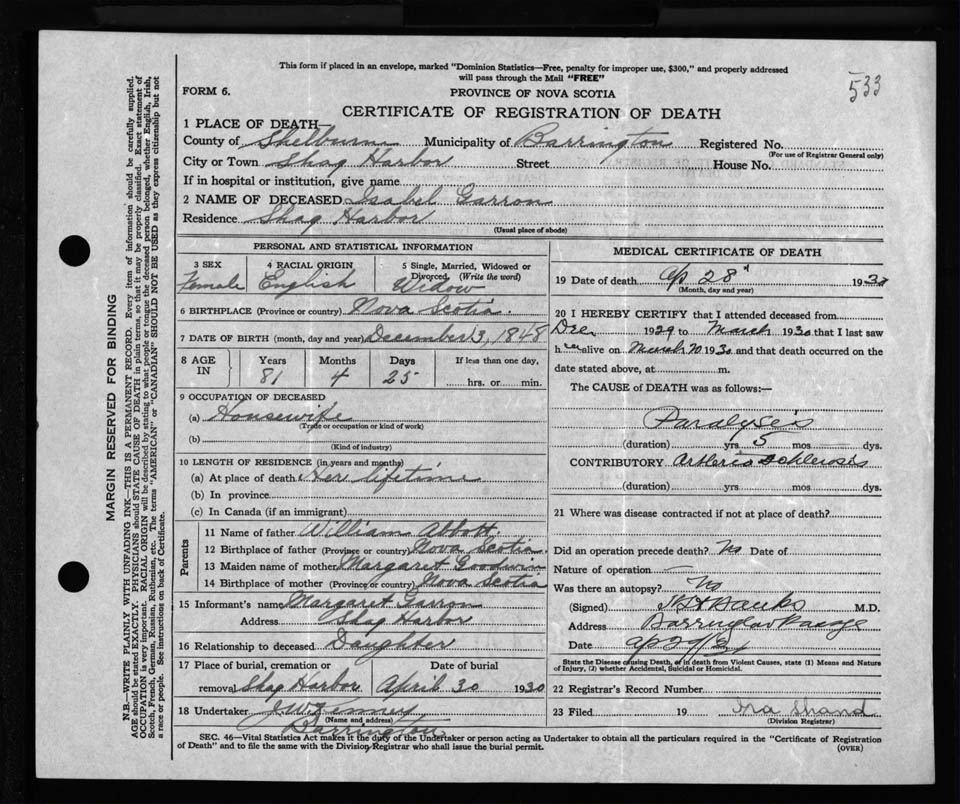 This form if placed in an envelope, marked "Dominion Statistics—Free, penalty for improper use, $300," and properly addressed
will pass through the Mail "FREE"
533
FORM 6.
PROVINCE OF NOVA SCOTIA
CERTIFICATE OF REGISTRATION OF DEATH
1 PLACE OF DEATH—
County of Shelburne Municipality of Barrington Registered No.
(For use of Registrar General only)
City or Town Shag Harbor Street House No.
If in hospital or institution, give name
2 NAME OF DECEASED Isabel Garron
Residence Shag Harbor
(Usual place of abode)
PERSONAL AND STATISTICAL INFORMATION
3 SEX 4 RACIAL ORIGIN 5 Single, Married, Widowed or
Divorced. (Write the word)
Female English Widow
6 BIRTHPLACE (Province or country) Nova Scotia.
7 DATE OF BIRTH (month, day and year) December 3, 1848
8 AGE IN Years Months Days If less than one day,
81 4 25 hrs. or min.
9 OCCUPATION OF DECEASED
(a) Housewife
(Trade or occupation or kind of work)
(b)
(Kind of industry)
10 LENGTH OF RESIDENCE (in years and months)
(a) At place of death Her lifetime
(b) In province
(c) In Canada (if an immigrant)
Parents
11 Name of father William Abbott
12 Birthplace of father (Province or country) Nova Scotia
13 Maiden name of mother Margaret Goodwin
14 Birthplace of mother (Province or country) Nova Scotia
15 Informant's name Margaret Garron
Address Shag Harbor
16 Relationship to deceased Daughter
17 Place of burial, cremation or Date of burial
removal Shag Harbor April 30 1930
18 Undertaker J. W. Kenney
(Name and address)
Barrington
MEDICAL CERTIFICATE OF DEATH
19 Date of death Ap 28" 1930
(Month, day and year)
20 I HEREBY CERTIFY that I attended deceased from
Dec 1929 to March 1930 that I last saw
her alive on March 20 1930 and that death occurred on the
date stated above, at m.
The CAUSE OF DEATH was as follows:—
Paralysis
(duration) yrs 5 mos dys.
CONTRIBUTORY
(duration) yrs mos dys.
21 Where was disease contracted if not at place of death?
Did an operation precede death? No Date of
Nature of operation —
Was there an autopsy? No
(Signed) Banks M.D.
Address Barrington Passage
Date Ap 29/30
State the Disease causing Death, or in death from Violent Causes, state (1) Means and Nature
of Injury, (2) whether Accidental, Suicidal or Homicidal.
22 Registrar's Record Number
23 Filed 19 Ira Shand
(Division Registrar)
SEC. 46—Vital Statistics Act makes it the duty of the Undertaker or person acting as Undertaker to obtain all the particulars required in the "Certificate of Registration
of Death" and to file the same with the Division Registrar who shall issue the burial permit.
(OVER)
MARGIN RESERVED FOR BINDING
N.B.—WRITE PLAINLY WITH UNFADING INK—THIS IS A PERMANENT RECORD. Every item of information should be carefully supplied.
AGE should be stated EXACTLY. PHYSICIANS should STATE CAUSE OF DEATH in plain terms, so that it may be properly classified. Exact statement of
OCCUPATION is very important. RACIAL ORIGIN will be described by stating to what people or tongue the deceased person belonged, whether English, Irish,
Scotch, French, German, Russian, Ruthenian, etc. The terms "AMERICAN" or "CANADIAN" SHOULD NOT BE USED as they express citizenship but not
a race or people. See instructions on back of Certificate.